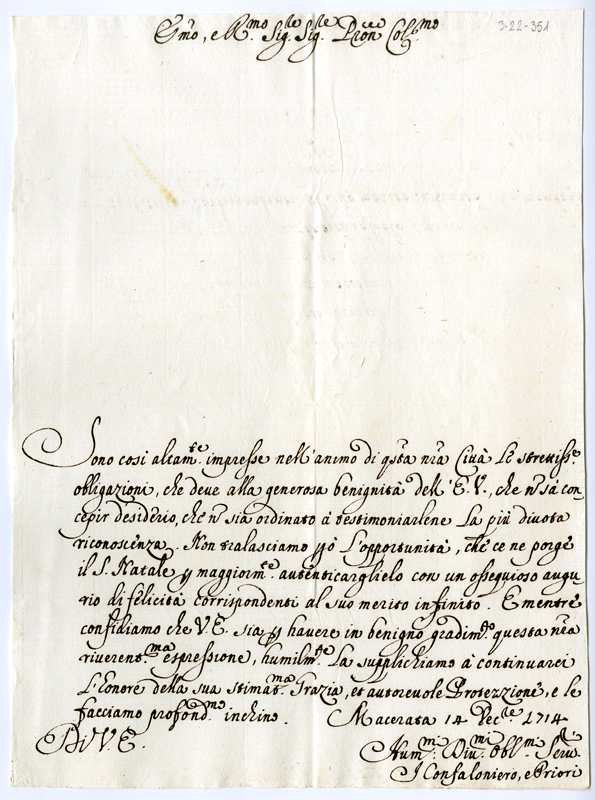 3-22-351
Em̃o, e R.mo Sig.re Sig.re Pron Col.mo
Sono così altam.te impresse nell'animo di q̃sta nr̃a Città le strettiss.e
obligazioni, che deve alla generosa benignità dell'E.V., che nõ sà con
cepir desiderio, che nõ sia ordinato à testimoniarlene la più divota
riconoscienza. Non tralasciamo p̃ò l'opportunità, che ce ne porge
il S. Natale p̃ maggiorm.te autenticarglielo con un ossequioso augu
rio di felicità corrispondenti al suo merito infinito. E mentre
confidiamo che V.E. sia p̃ havere in benigno gradim.to questa nr̃a
riverent.ma espressione, humilm.te la supplichiamo à continuarci
l'honore della sua stimat.ma Grazia, et autorevole Protezzione, e le
facciamo profond.mo inchino. Macerata 14 Dec.re 1714
Di V.E.
Hum.mi Div.mi Obl.mi Serv.
Il Confaloniero, e Priori